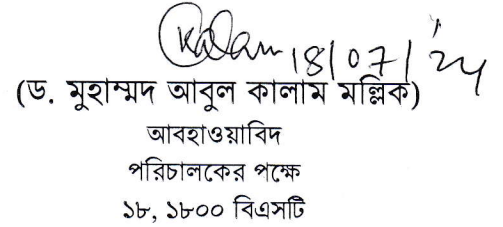 Kalam 18/07/'24
(ড. মুহাম্মদ আবুল কালাম মল্লিক)
আবহাওয়াবিদ
পরিচালকের পক্ষে
১৮, ১৮০০ বিএসটি